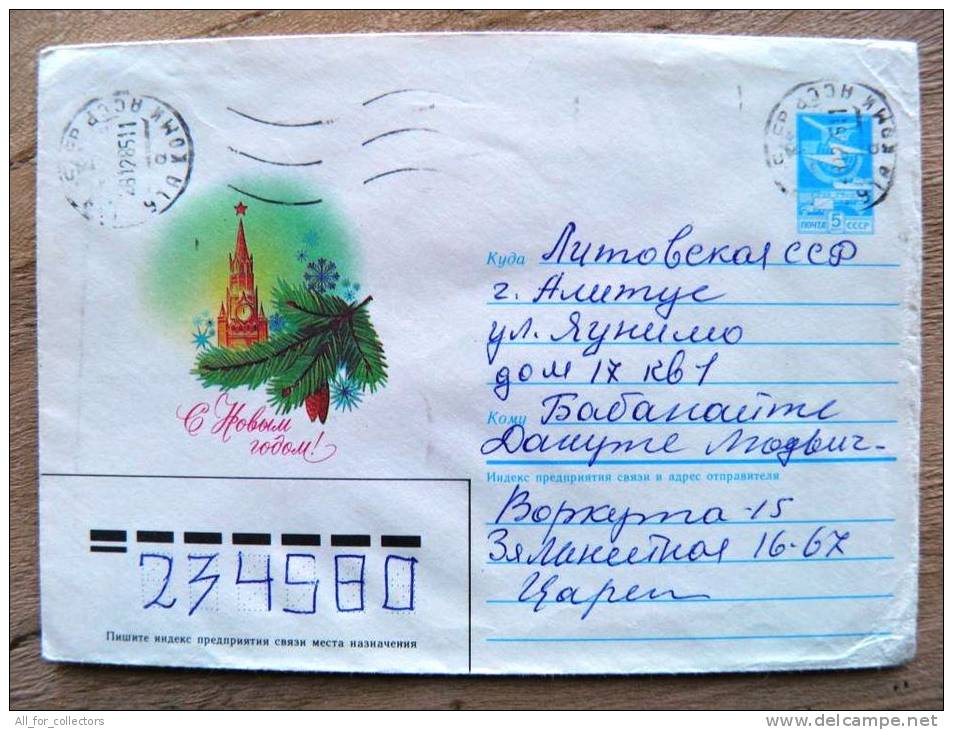 КОМИ АССР
28128511
ПОЧТА 5 СССР
С Новым
годом!
Куда Литовская ССР
г. Алитус
ул. Яунимо
дом 17 кв 1
Кому Бабанайте
Дануте Людвич-
Индекс предприятия связи и адрес отправителя
Воркута-15
16-67
234580
Пишите индекс предприятия связи места назначения
All_for_collectors
www.delcampe.net